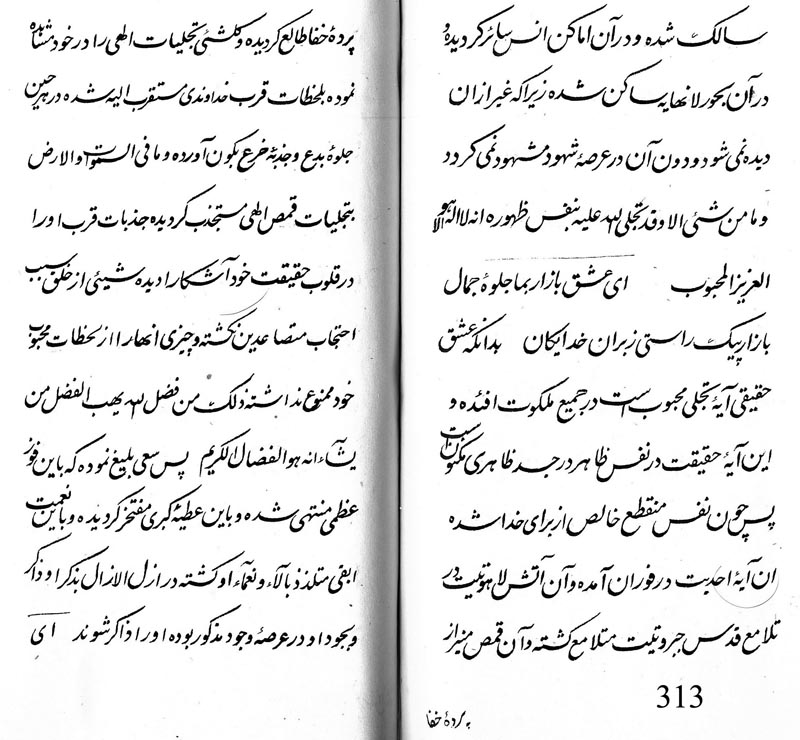 سالک شده و در آن اماکن انس سائر گردیده و
در آن بحور لانهایه ساکن شده زیرا که غیر از ان
دیده نمی شود و دون آن در عرصهٔ شهود مشهود نمی گردد
و ما من شئی الا و قد تجلی الله علیه بنفس ظهوره انه لا اله الا هو
العزیز المحبوب ای عشق باز ار بما جلوهٔ جمال
باز ار پیک راستی ز بر ان خدایکان بدانکه عشق
حقیقی آیهٔ تجلی محبوب است در جمیع ملکوت افئده و
این آیهٔ حقیقت در نفس ظاهر در جسد ظاهری مکنون است
پس چون نفس منقطع خالص از برای خدا شده
ان آیهٔ احدیت در فوران آمده و آن آتش لاهوتیت در
تلامع قدس جبروتیت متلامع کشته و آن قمص منیر از
313
پردهٔ خفا
پردهٔ خفا طالع کردیده و کلشئی تجلیات الهی را در خود مشاهده
نموده بلحظات قرب خداوندی مستقرب الیه شده در هر حین
جلوهٔ بدع و جذبهٔ خرع بکون آورده و ما فی السموات و الارض
بتجلیات قمص الهی مستجذب کردیده جذبات قرب او را
در قلوب حقیقت خود آشکارا دیده شیئی از خلق بسبب
احتجاب متصاعدین نکشته و چیزی انها را از لحظات محبوب
خود ممنوع نداشته ذلک من فضل الله یهب الفضل من
یشآء انه هو الفضال الکریم پس سعی بلیغ نموده که باین فوز
عظمی منتهی شده و باین عطیهٔ کبری مفتخر کردیده و باین نعمت
ابقی متلذذ بآلآء و نعمآء او کشته در ازل الازال بذکر او ذاکر
و بجود او در عرصهٔ وجود مذکور بوده او را ذاکر شوند ای